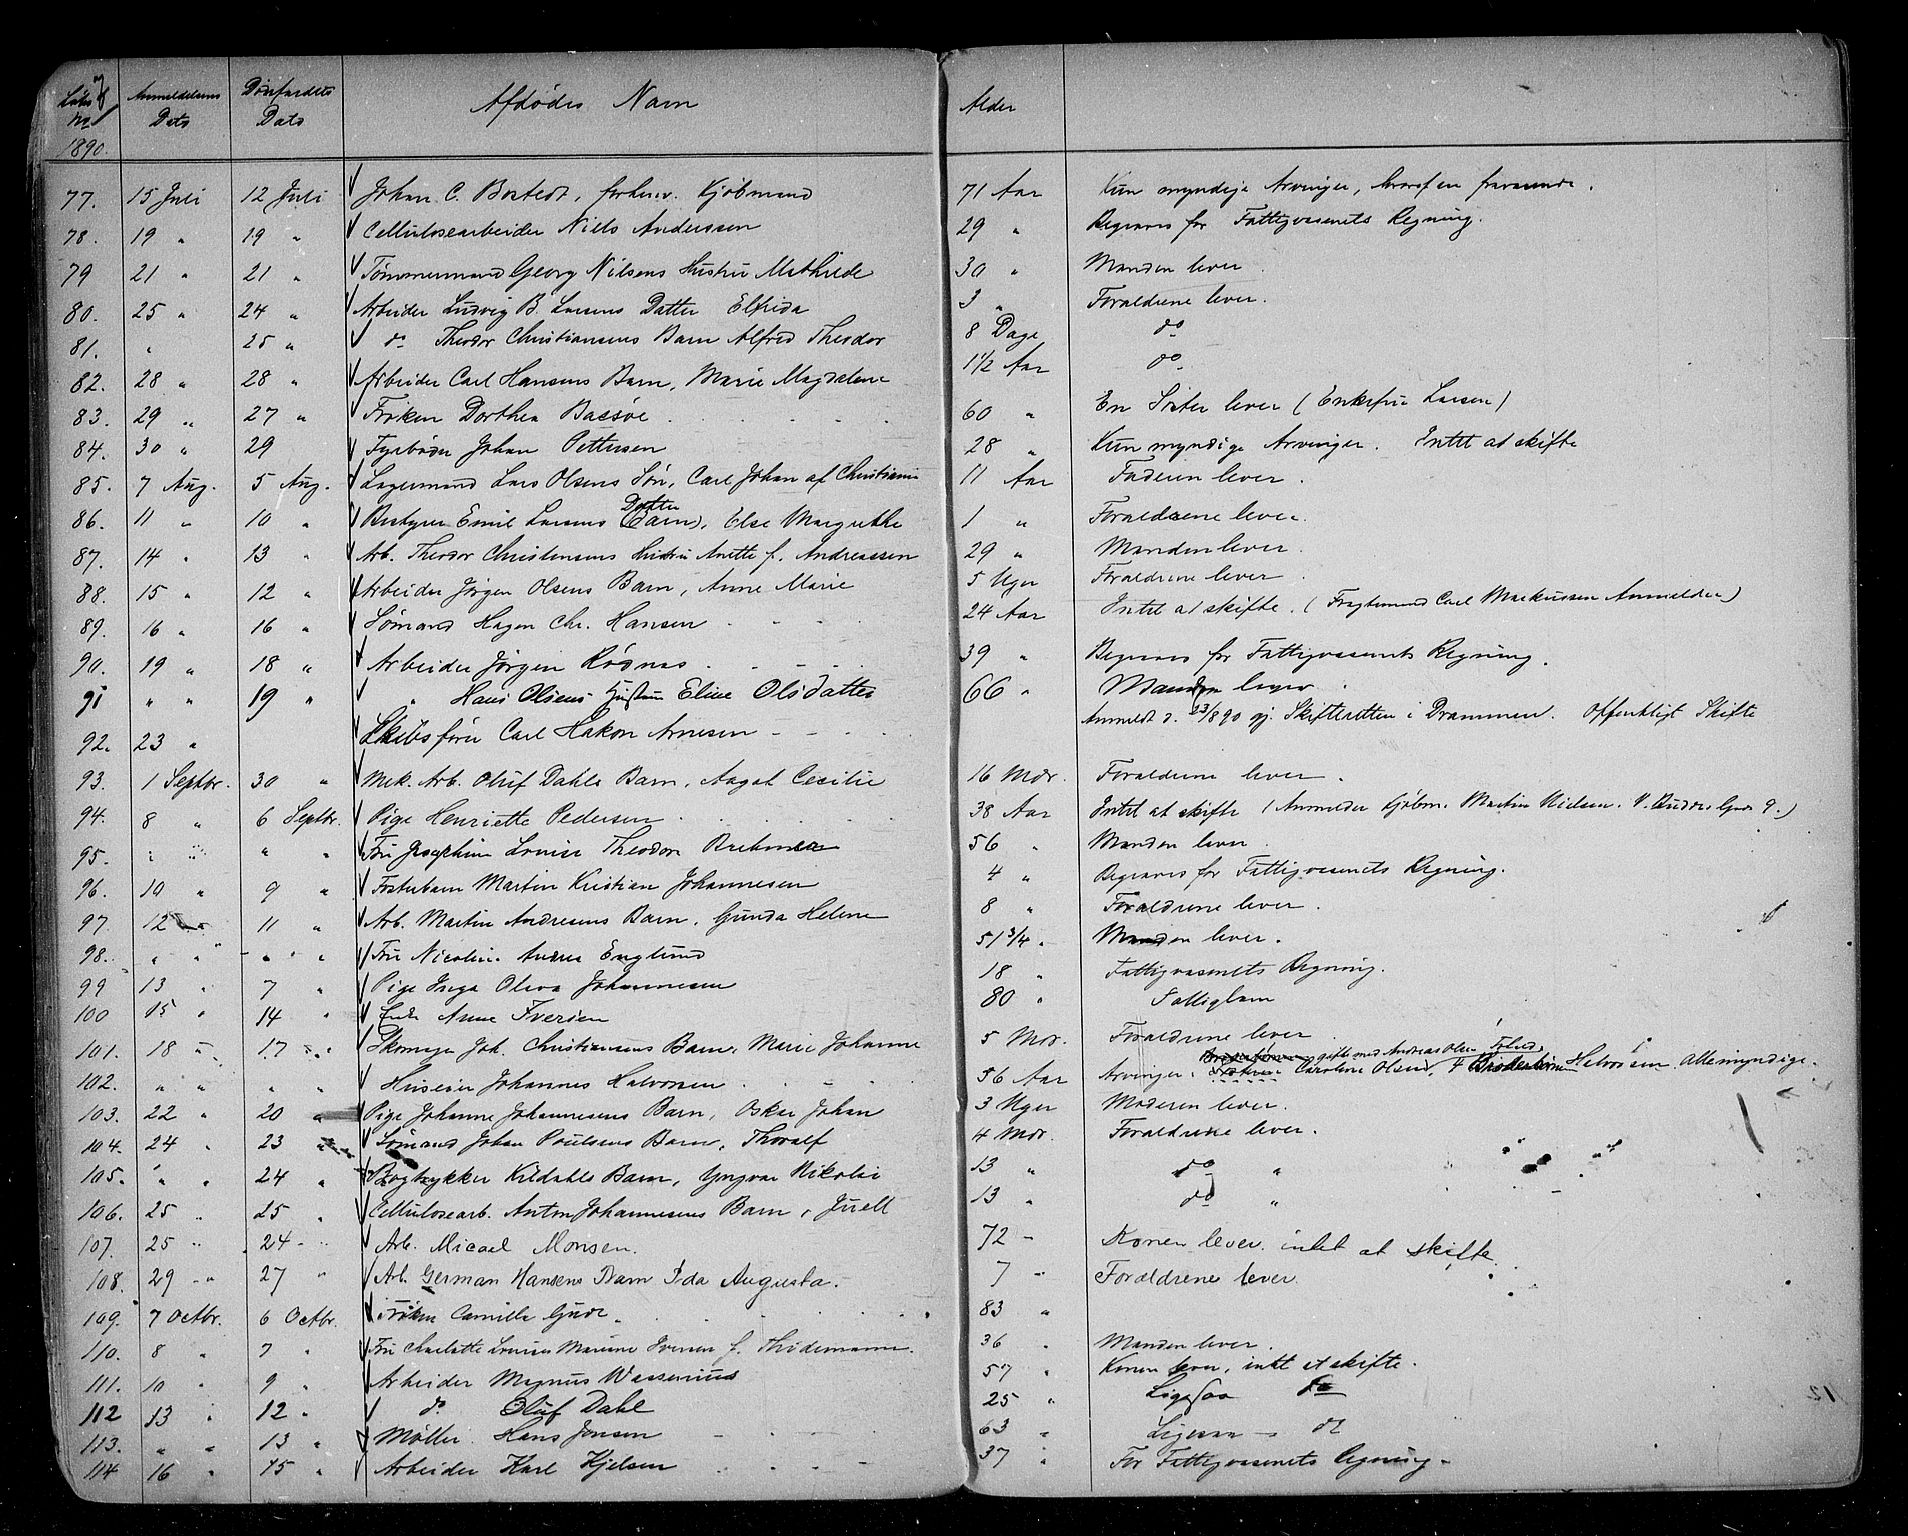 Løbe No Anmeldelsens Dato Dødsfaldets Dato Afdødes Navn Alder
1890.
77. 15 Juli 12 Juli Johan C. Bostedt, forhenv. Kjøbmand 71 Aar Kun myndige Arvinger, hvoraf en fraværende.
78. 19 " 19 " Cellulosearbeider Niels Anderssen 29 " Begraves for Fattigvæsenets Regning.
79 21 " 21 " Tømmermand Georg Nilsens Hustru Mathilde 30 " Manden lever
80. 25 " 24 " Arbeider Ludvig B. Larsens Datter Elfrida 3 " Forældrene lever.
81. " 25 " do Theodor Christiansens Barn Alfred Theodor 8 Dage do
82. 28 " 28 " Arbeider Carl Hansens Barn, Marie Magdalene 1 1/2 Aar do
83. 29 " 27 " Frøken Dorthea Bassøe 60 " En Søster lever (Enkefru Larsen)
84. 30 " 29 Fyrbøder Johan Pettersen 28 " Kun myndige Arvinger. Intet at skifte
85. 7 Aug. 5 Aug. Lagermand Lars Olsens Søn, Carl Johan af Christiania 11 Aar Faderen lever.
Datter
86. 11 " 10 " Bestyrer Emil Larsens (Barn), Else Margrethe 1 " Forældrene lever.
87. 14 " 13 " Arb. Theodor Christensens Hustru Anette f. Andreassen 29 " Manden lever.
88. 15 " 12 " Arbeider Jørgen Olsens Barn, Anne Marie 5 Uger Forældrene lever
89. 16 " 16 " Sømand Hagen Chr. Hansen 24 Aar Intet at skifte. (Fragtemand Carl Markussen Anmelder)
90. 19 " 18 " Arbeider Jørgen Rødnæs 39 " Begraves for Fattigvæsenets Regning.
91 " " 19 " " Hans Olsens Hustru Eline Olsdatter 66 " Manden lever
92. 23 " Skibsfører Carl Hakon Arnesen Anmeldt d. 23/8 90 gj. Skifteretten i Drammen. Offentligt Skifte
93. 1 Septbr. 30 " Mek. Arb. Oluf Dahls Barn, Aagot Cecilie 16 Mdr. Forældrene lever.
94. 8 " 6 Septbr. Pige Henriette Pedersen 38 Aar Intet at skifte (Anmelder Kjøbm. Martin Nielsen. V. Budds. Gade 9.)
95. " " " " Fru Josephine Louise Theodora 56 " Manden lever
96. 10 " 9 " Fosterbarn Martin Kristian Johannesen 4 " Begraves for Fattigvæsenets Regning.
97. 12 " 11 " Arb. Martin Andresens Barn, Gunda Helene 8 " Forældrene lever.
98. " " " " Fru Nicoline Andrea Englund 51 3/4 " Manden lever.
99 13 " 7 " Pige Inga Oliva Johannesen 18 " Fattigvæsenets Regning.
100 15 " 14 " Enke Anne Iversen 80 " Fattiglem
101. 18 " 17 " Skomager Joh. Christiansens Barn, Marie Johanne 5 Mdr. Forældrene lever
gift med Andreas Olsen
102. " " " " Huseier Johannes Halvorsen 56 Aar Arvinger: Caroline Olsen, 4 Broderbørn Halvorsen. Alle myndige.
103. 22 " 20 " Pige Johanne Johannesens Barn, Oskar Johan 3 Uger Moderen lever.
104. 24 " 23 " Sømand Johan Poulsens Barn, Thoralf 4 Mdr. Forældrene lever.
105. " " 24 " Bogtrykker Kildahls Barn, Yngvar Nikolai 13 " do "
106. 25 " 25 " Cellulosearb. Anton Johannesens Barn, Juell 13 " do "
107. 25 " 24 " Arb. Micael Monsen. 72 - Konen lever. intet at skifte
108. 29 " 27 " Arb. German Hansens Barn Ida Augusta. 7 - Forældrene lever
109. 7 Octbr. 6 Octbr. Frøken Camilla Gude 83 "
110. 8 " 7 " Fru Charlotte Louise Marine Iversen f. Thidemann. 36 " Manden lever.
111. 10 " 9 " Arbeider Magnus Wassenius 57 " Konen lever, intet at skifte.
112 13 " 12 " do Oluf Dahl 25 " Ligesaa do
113. " " 13 " Møller Hans Jonsen 63 " Ligesaa do
114 16 " 15 " Arbeider Karl Kjelsen 37 " For Fattigvæsenets Regning.